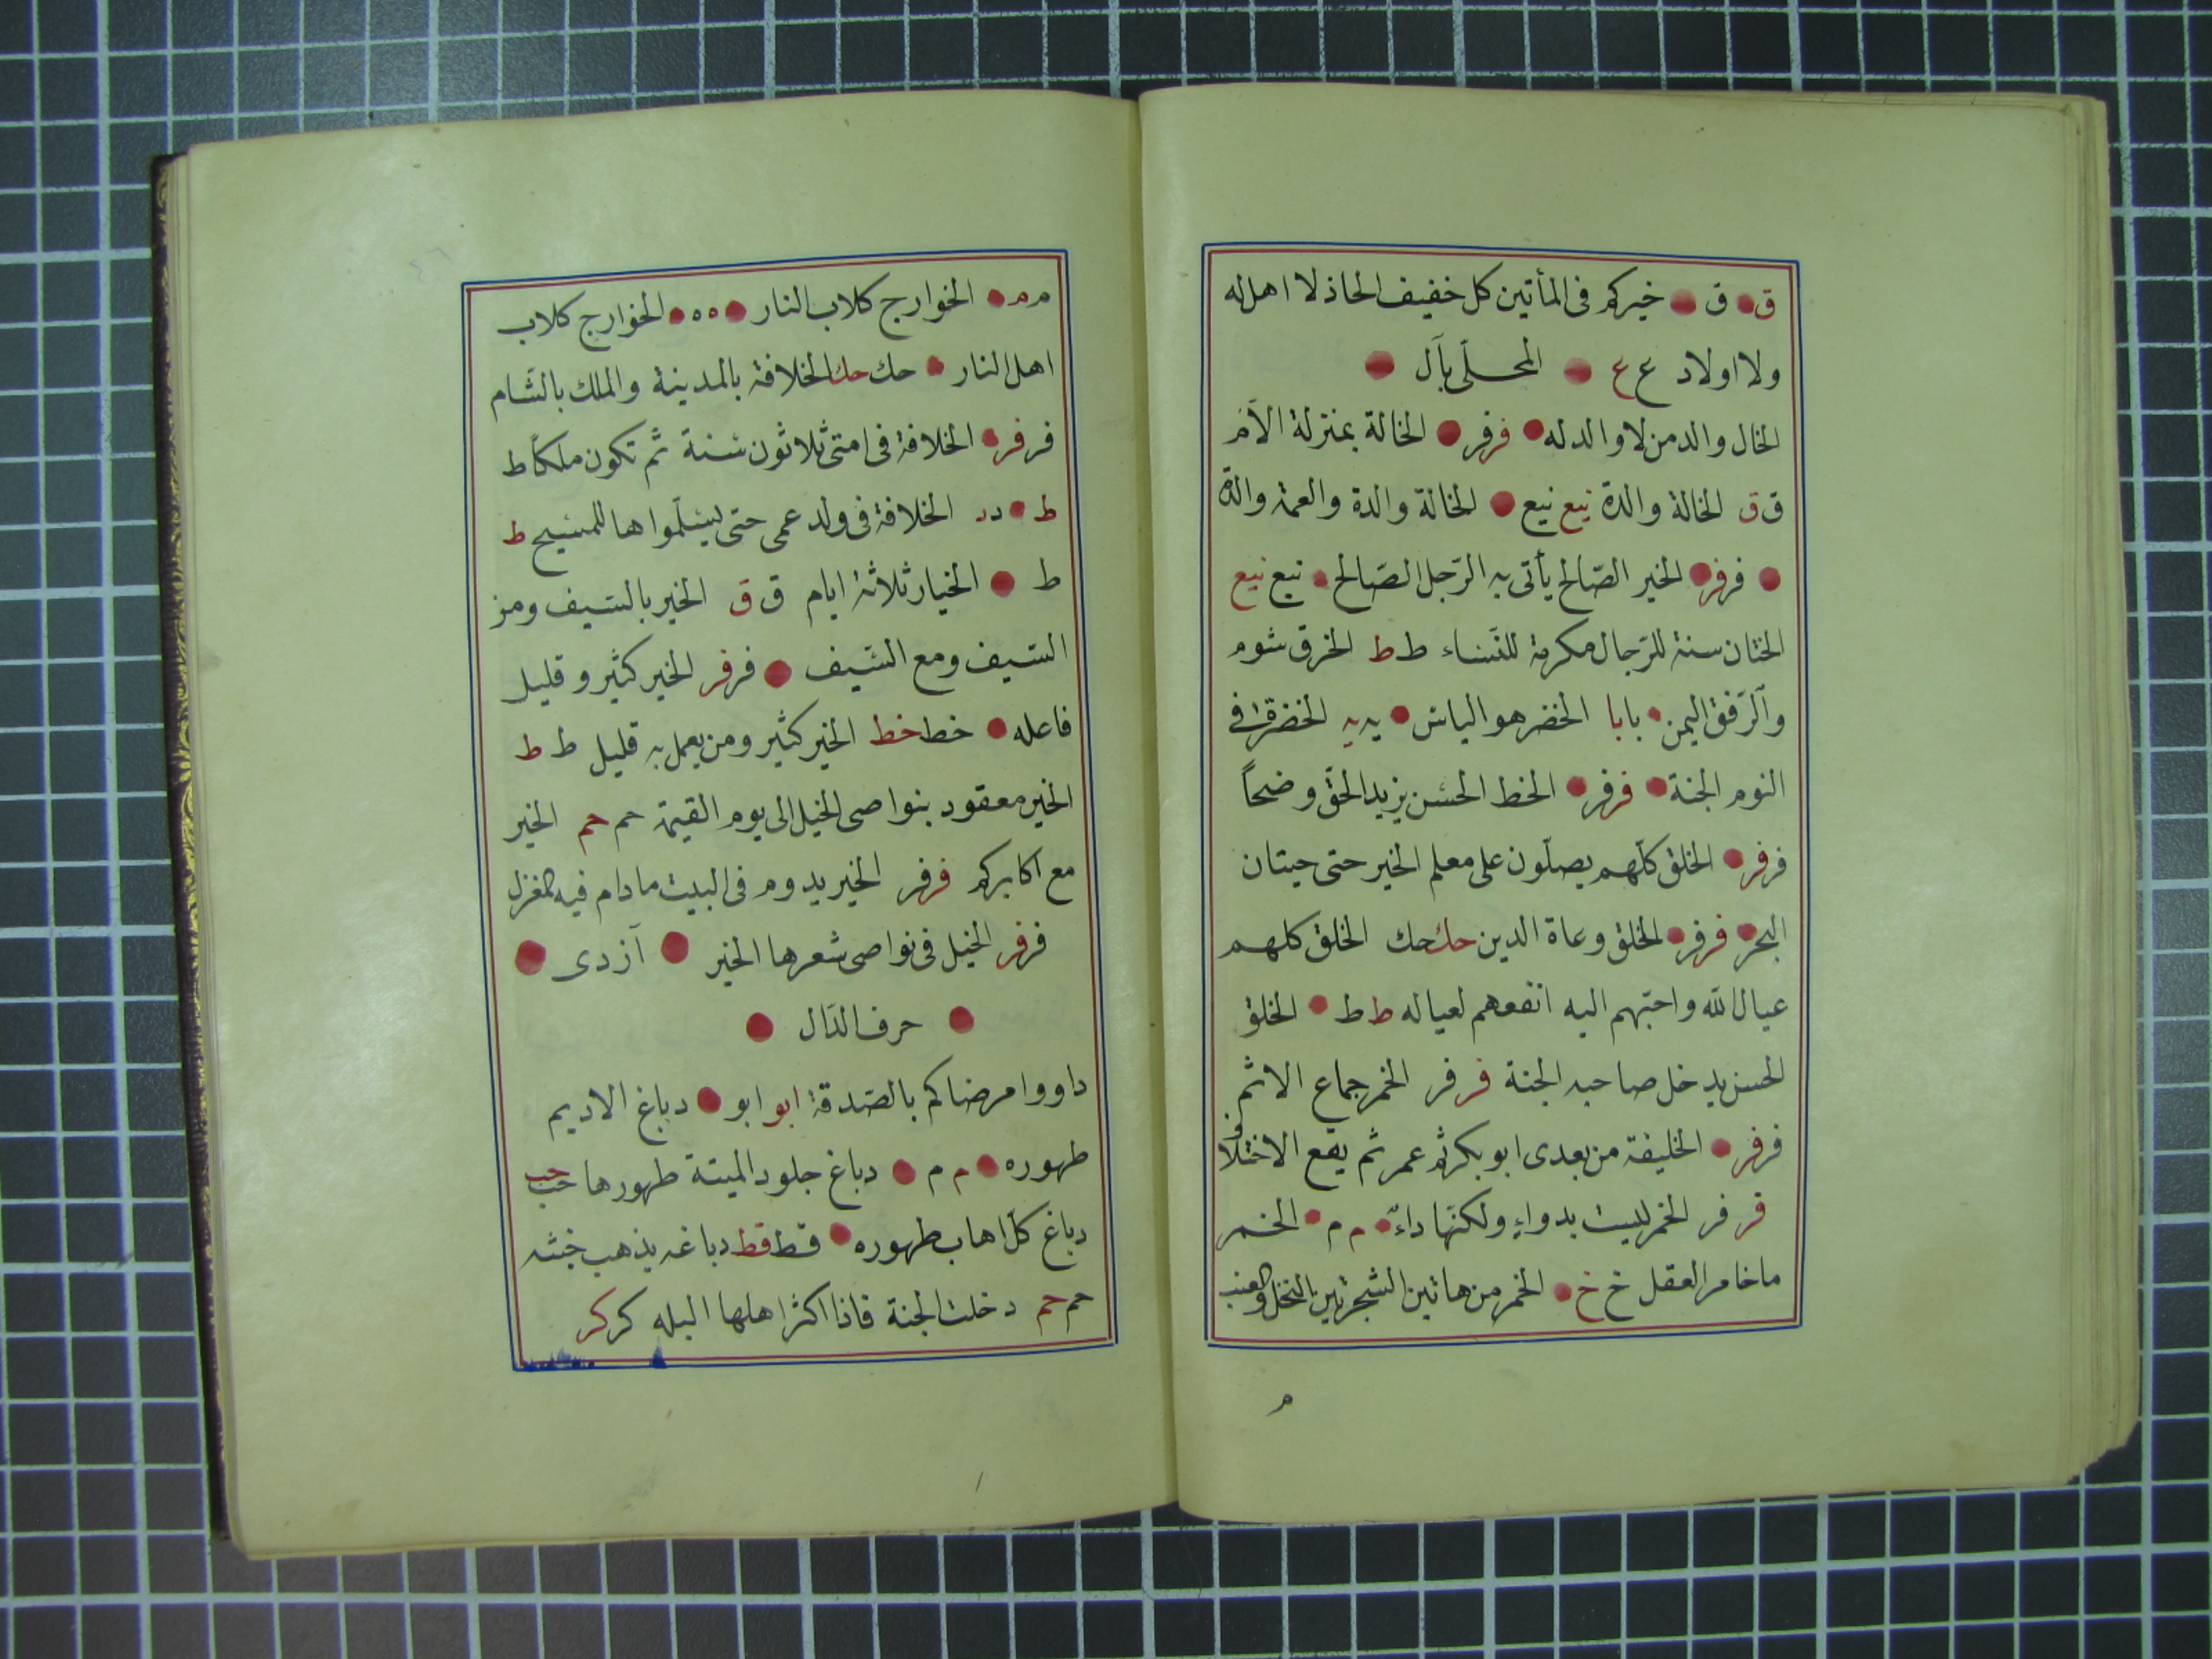 ق ق خيركم فى المأتين كل خفيف الحاذ لا اهل له
ولا اولاد ع ع المحلّى بآل
الخال والد من لا والد له فر فر الخالة بمنزلة الاَم
ق ق الخالة والدة نيع نيع الخالة والدة والعمة والدة
فر فر الخير الصّالح يأتى به الرّجل الصّالح نيع نيع
الختان سنة للرّجال مكرمة للنّساء ط ط الخرق شوم
والرّفق اليمن بابا الخضر هو الياس يه يه الخضرة فى
النوم الجنة فر فر الخط الحسن يزيد الحقّ وضحاً
فر فر الخلق كلّهم يصلّون على معلم الخير حتى حيتان
البحر فر فر الخلق وعاة الدين حك حك الخلق كلهم
عيال الله واحبّهم اليه انفعهم لعياله ط ط الخلق
الحسن يدخل صاحبه الجنة فر فر الخمر جماع الاثم
فر فر الخليفة من بعدى ابو بكر ثم عمر ثم يقع الاختلاف
فر فر الخمر ليست بدواءٍ ولكنّها داءٌ م م الخمر
ما خامر العقل خ خ الخمر من هاتين الشجرتين النخل والعنب
م
م م الخوارج كلاب النار ه ه الخوارج كلاب
اهل النار حك حك الخلافة بالمدينة والملك بالشّام
فر فر الخلافة فى امتى ثلاثون سنة ثم تكون ملكاً ط
ط د د الخلافة فى ولد عمى حتى يسلّموا ها للمسيح ط
ط الخيار ثلاثة ايام ق ق الخير بالسّيف ومن
السّيف ومع السّيف فر فر الخير كثير وقليل
فاعله خط خط الخير كثير ومن يعمل به قليل ط ط
الخير معقود بنواصى الخيل الى يوم القيمة حم حم الخير
مع اكابركم فر فر الخير يدوم فى البيت مادام فيه المغزل
فر فر الخيل فى نواصى شعرها الخير آزدى
حرف الدّال
داووا مرضاكم بالصّدقة ابو ابو دباغ الاديم
طهوره م م دباغ جلود الميتة طهورها حب حب
دباغ كلّ اهاب طهوره قط قط دباغه يذهب خبثه
حم حم دخلت الجنة فاذا اكثر اهلها البله كر كر